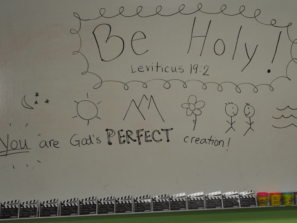 Be Holy!
Leviticus 19:2
You are God's PERFECT creation!